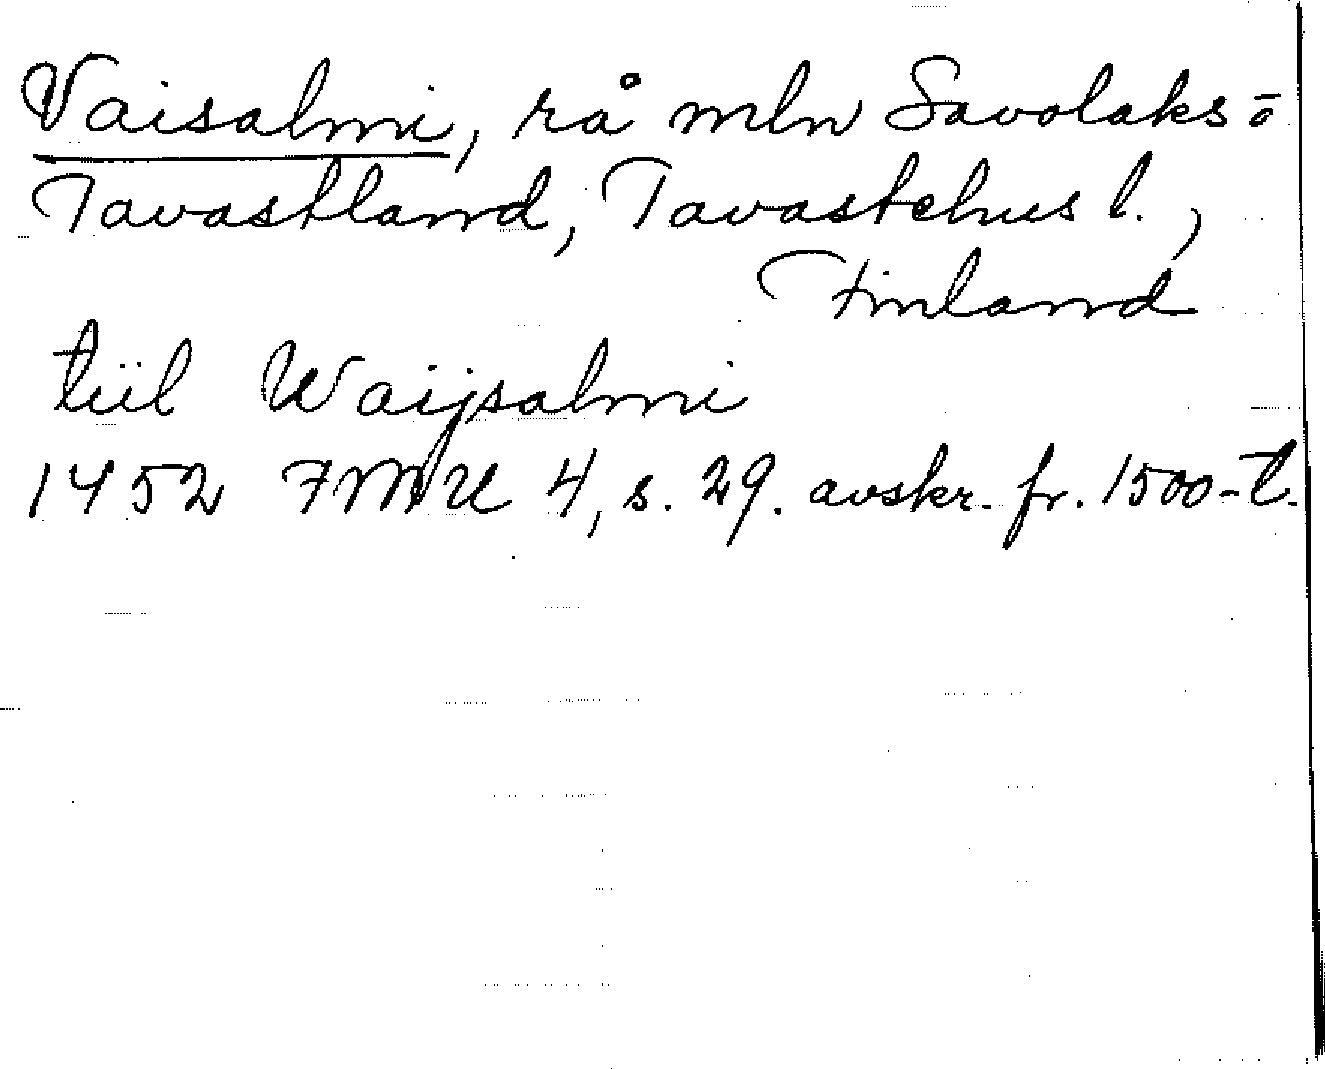 Vaisalmi, rå mln Savolaks o
Tavastland, Tavastehus l.,
Finland
tiil Waijsalmi
1452 FMU 4, s. 29. avskr. fr. 1500-t.